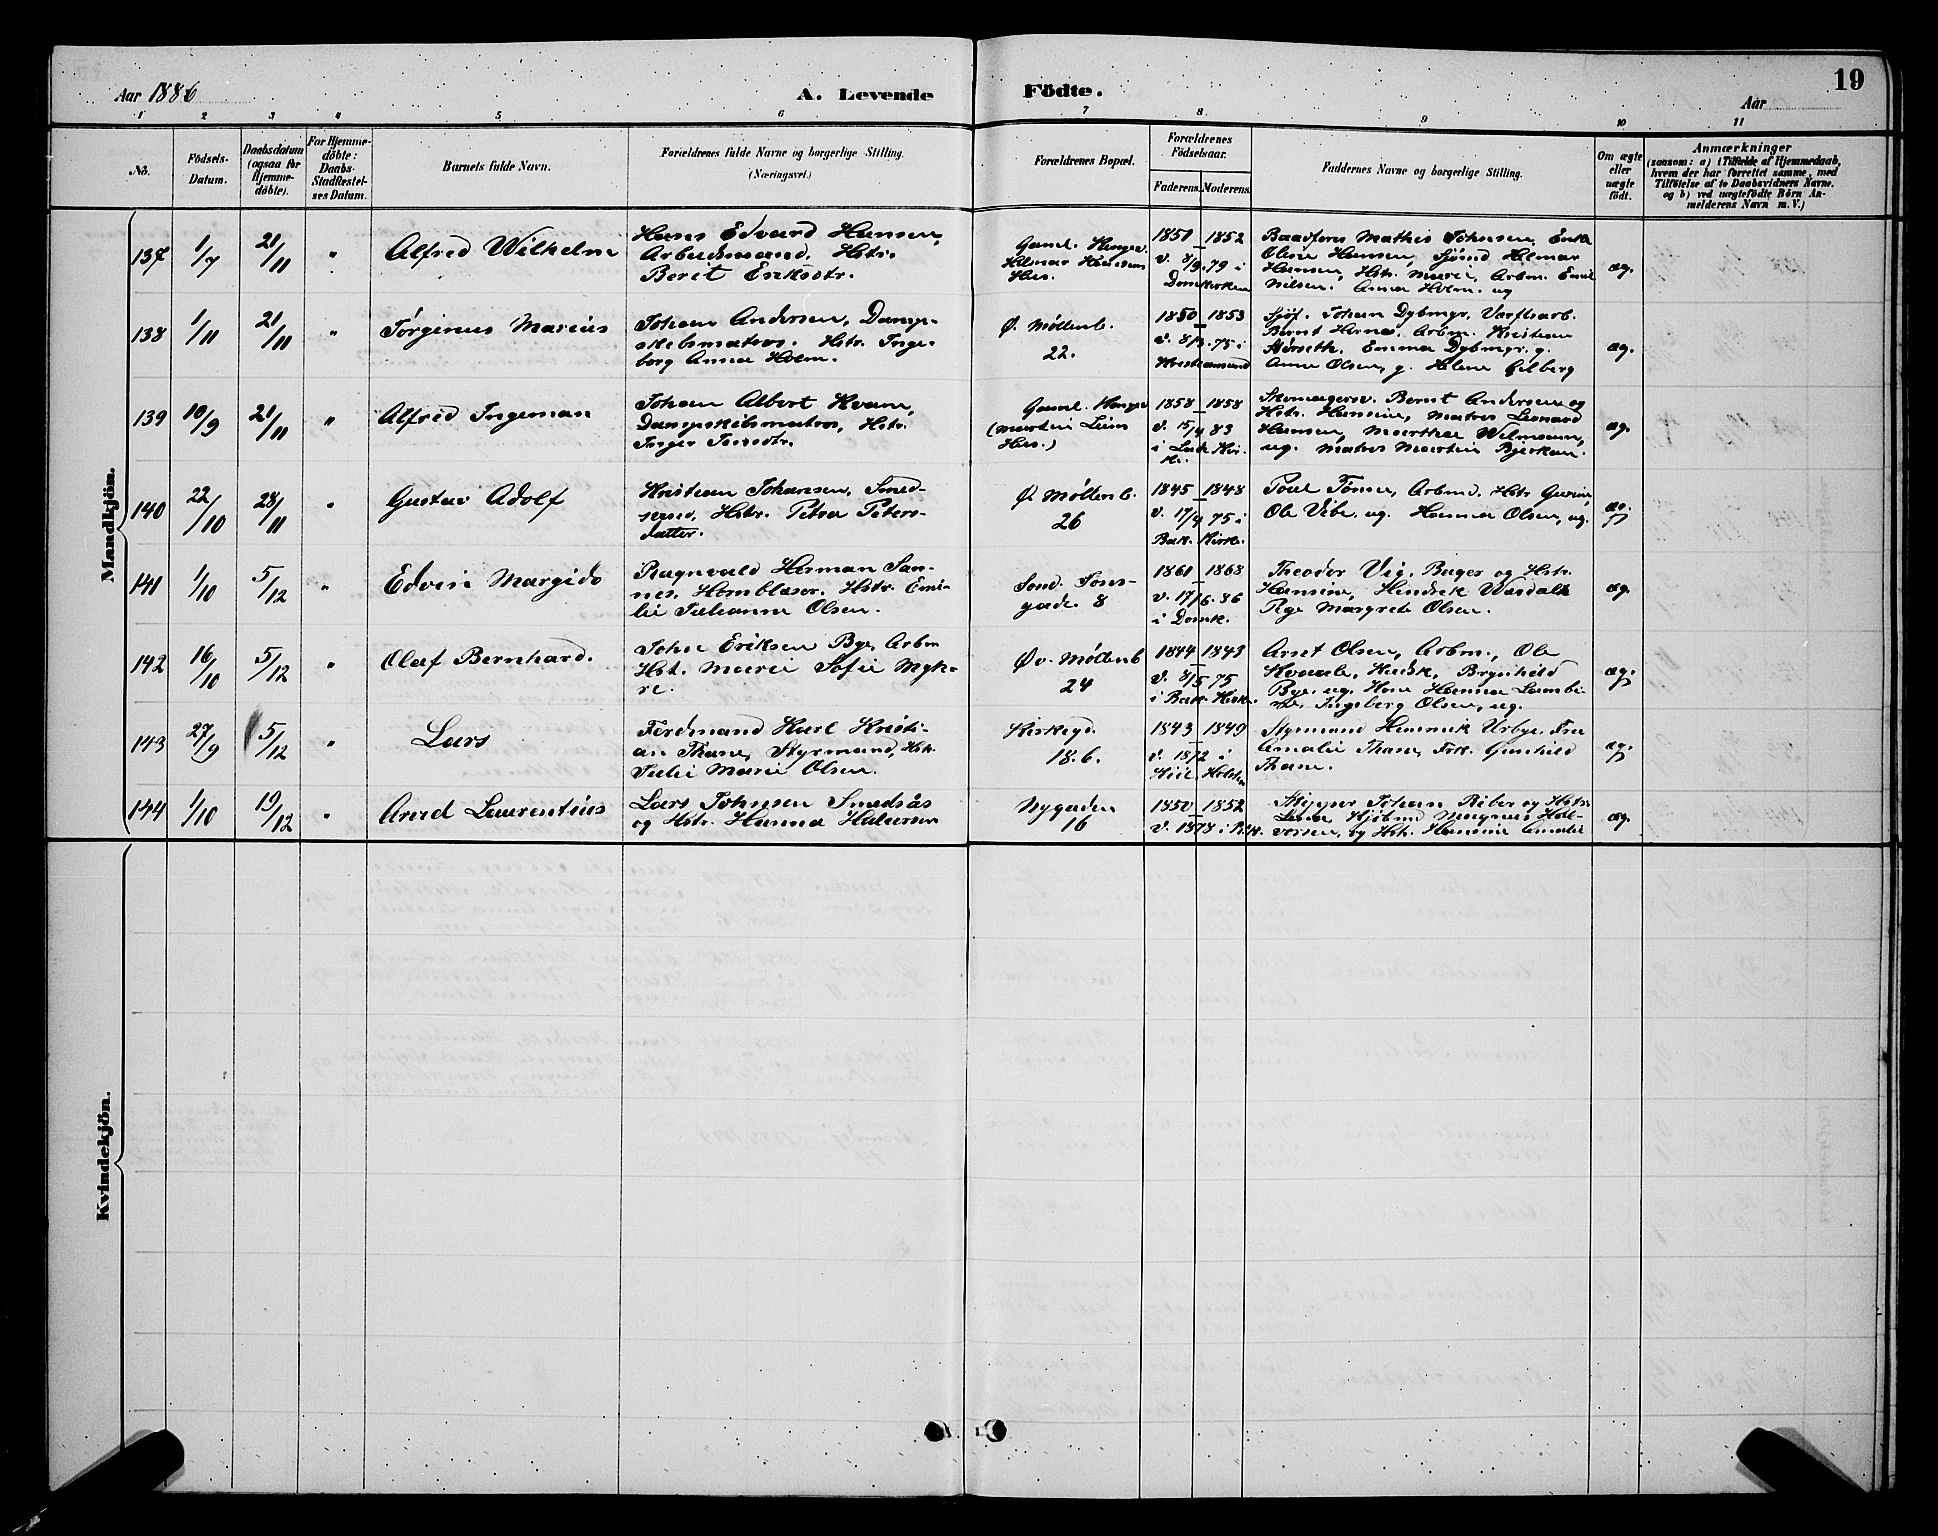 Aar 1886
A. Levende
Födte.
Aar
19
1 2 3 4 5 6 7 8 9 10 11
No.
Födsels-
Datum.
Daabsdatum
(ogsaa for
Hjemme-
döbte).
For Hjemme-
döbte:
Daabs-
Stadfæstel-
ses Datum.
Barnets fulde Navn.
Forældrenes fulde Navne og borgerlige Stilling.
(Næringsvei.)
Forældrenes Bopæl.
Forældrenes
Födselsaar.
Faderens.
Moderens.
Faddernes Navne og borgerlige Stilling.
Om ægte
eller
uægte
födt.
Anmærkninger
(saasom: a) i Tilfælde af Hjemmedaab,
hvem der har forrettet samme, med
Tilföielse af to Daabsvidners Navne.
og b) ved uægtefödte Börn An-
melderens Navn m. V.)
Mandkjön.
137 1/7 21/11 " Alfred Wilhelm
Hans Edvard Hansen,
Arbeidsmand. Hstr.
Berit Eriksdtr.
Gaml.
Hilmar Hansens
Hus.
1850 1852
v. 8/9. 79 i
Domkirken
Baadförer Mathis Johnsen, Enke
Oline Hansen, Sjömd Hilmar
Hansen, Hstr. Marie, Arbm. Emil
Nilsen. Anna Holm. ug
æg.
138 1/11 21/11 " Jörginus Marius
Johan Andersen, Damp-
skibsmatros. Hstr. Inge-
borg Anna Holm.
Ö. Möllenb.
22.
1850 1853
v. 8/3. 75 i
Kristiansund
Sjöf. Johan Dybmyr, Værftsarb.
Bernt Hernes. Arbm. Kristian
Störseth. Emma Dybmyr. g.
Anne Olsen, g. Helene Eilberg
æg.
139 10/9 21/11 " Alfred Ingeman
Johan Albert Kvam,
Dampskibsmatros, Hstr.
Gaml.
(Martin Liens
Hus.)
1858 1858
v. 15/4 83
i Lade Kir-
ke.
Skomagersv. Bernt Andersen og
Hstr. Hansine, Matros Leonard
Hansen, Marthea Wilmann,
ug. Matros Martin Bjerkan.
æg.
140 22/10 28/11 " Gustav Adolf
Kristian Johansen, Smed-
svend, Hstr. Petra Peters-
datter.
Ö. Möllenb.
26
1845 1848
v. 17/9 75 i
Bak. Kirke.
Poul Tönne, Arbmd. Hstr Gurine,
Ole Vibe. ug. Hanna Olsen, ug.
æg.
141 1/10 5/12 " Edvin Margido
Ragnvald Herman San-
nes, Hornblæser. Hstr. Emi-
lie Julianne Olsen.
Sond.
gade. 8
1861 1868
v. 17/6. 86
i Domk.
Theodor Vig, Bager og Hstr.
Hansine, Hendrik
Pige Margrete Olsen.
æg.
142 16/10 5/12 " Olaf Bernhard.
John Eriksen Bye, Arbm
Hst. Marie Sofie Myk-
re.
Öv. Möllenb
24
1844 1843
v. 8/5 75
i Bak. Kirke.
Arnt Olsen, Arbm., Ole
Kvaale, Brynhild
Bye, ug. Kone Hanna Lambi-
ne, Ingeborg Olsen, ug.
æg.
143 27/9 5/12 " Lars
Ferdinand Karl Kristi-
an Thane, Styrmand, Hst.
Julie Marie Olsen.
Kirkegd.
18.6.
1843 1849
v. 1872 i
Kiel. Holsten
Styrmand Henrik Urbye, Fru
Amalie Thane, Frk. Gunhild
Thane.
æg.
144 1/10 19/12 " Arvid Laurentius
Lars Johnsen Smedsås
og Hstr. Hanna Halvorsen
Nygaden
16
1850 1852
v. 1878 i
Skipper Johan Riber og Hstr.
Lina Kjöbmd Magnus Hal-
vorsen, og Hst. Hansine Amalie
æg.
Kvindekjön.